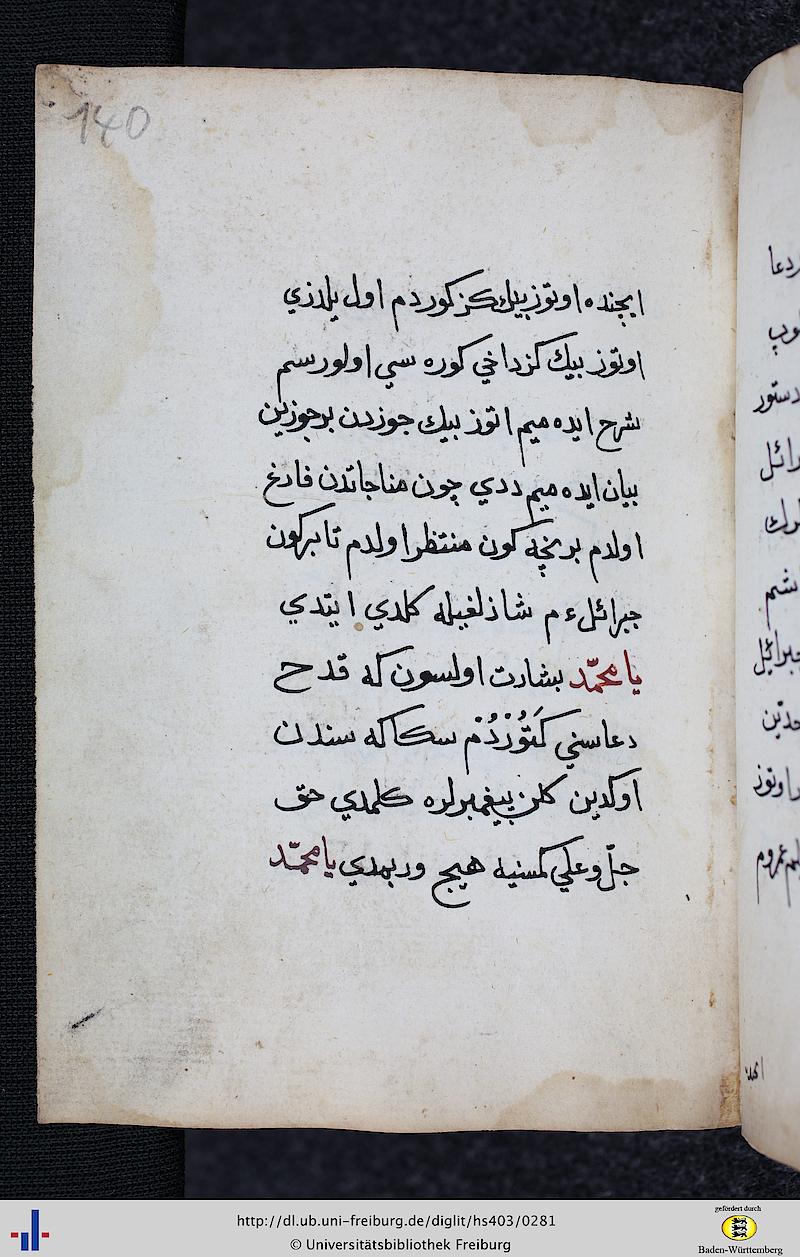 140
ایچنده اوتوز بيك كز كوردم اول يلدزي
اوتوز بيك كز داخي كوره سي اولورسم
شرح ايده ميم اتوز بيك جوزدن بر جوزين
بيان ايده ميم ددي چون مناجاتدن فارغ
اولدم بر نچه كون منتظر اولدم تا بر كون
جبرائل ءم شاذلغيله كلدي ايتدي
يا محمّد بشارت اولسون كه قدح
دعاسني كَتُورْدُمْ سكا كه سندن
اوكدين كلن پيغمبرلره كلمدي حق
جلّ وعلي كمسنيه هيچ ويرمدي يا محمّد
ردعا
دستور
رائل
اشم
جبرائيل
http://dl.ub.uni-freiburg.de/diglit/hs403/0281
© Universitätsbibliothek Freiburg
gefördert durch
Baden-Württemberg